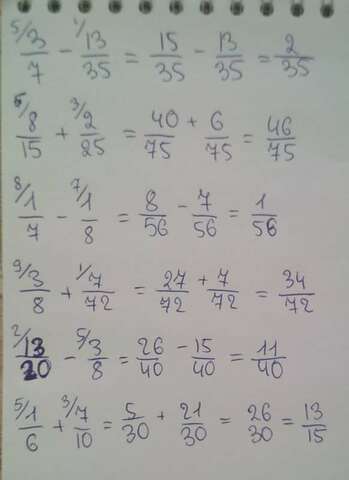 5/ 3/7 - 1/ 13/35 = 15/35 - 13/35 = 2/35
5/ 8/15 + 3/ 2/25 = 40/75 + 6/75 = 46/75
8/ 1/7 - 7/ 1/8 = 8/56 - 7/56 = 1/56
9/ 3/8 + 1/ 7/72 = 27/72 + 7/72 = 34/72
2/ 13/20 - 5/ 3/8 = 26/40 - 15/40 = 11/40
5/ 1/6 + 3/ 7/10 = 5/30 + 21/30 = 26/30 = 13/15